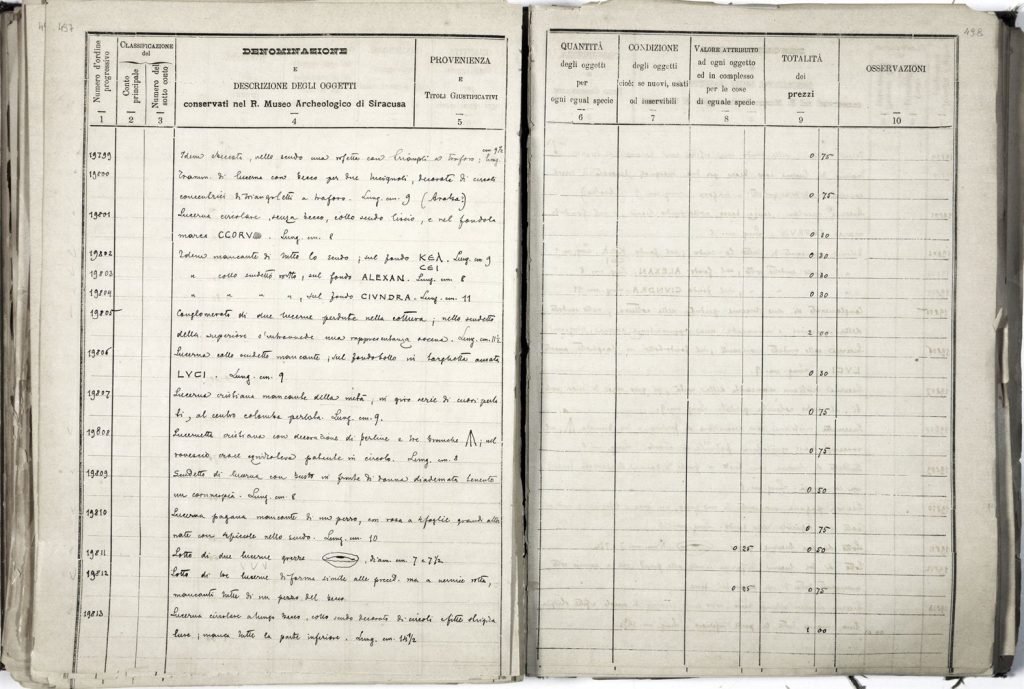 497
Numero d'ordine progressivo
CLASSIFICAZIONE
del
Conto principale
Numero del sotto conto
DENOMINAZIONE
E
DESCRIZIONE DEGLI OGGETTI
conservati nel R. Museo Archeologico di Siracusa
PROVENIENZA
E
TITOLI GIUSTIFICATIVI
1 2 3 4 5
19799 Idem sbeccata, nello scudo una rosetta con triangoli a traforo; Lung. cm 9½
19800 Framm. di lucerna con becco per due lucignoli, decorata di circoli
concentrici di triangoletti a traforo. Lung. cm. 9
19801 Lucerna circolare, senza becco, collo scudo liscio, e nel fondo la
marca CCORV . Lung. cm. 8
19802 Idem mancante di tutto lo scudo; sul fondo ΚΕΛ. Lung. cm 9
CEI
19803 " collo scudetto rotto, sul fondo ALEXAN. Lung. cm. 8
19804 " " " ", sul fondo CIVNDRA. Lung. cm. 11
19805 Conglomerato di due lucerne perdute nella cottura; nello scudetto
della superiore s'intravvede una rappresentanza oscena. Lung. cm. 11½
19806 Lucerna collo scudetto mancante; sul fondo bollo in targhetta ansata
LVCI. Lung. cm. 9
19807 Lucerna cristiana mancante della metà, in giro serie di cuori perla
ti, al centro colomba perlata. Lung. cm. 9.
19808 Lucernetta cristiana con decorazione di perline e tre branche ; nel
rovescio, croce equilatera patente in circolo. Lung. cm. 8
19809 Scudetto di lucerna con busto in fronte di donna diademata tenente
un cornucopia. Lung. cm. 8
19810 Lucerna pagana mancante di un pezzo, con rosa a 4 foglie grandi alter
nate con 4 piccole nello scudo. Lung. cm. 10
19811 Lotto di due lucerne grezze , diam. cm. 7 e 7½
19812 Lotto di tre lucerne di forma simile alle preced. ma a vernice rotta,
mancanti tutte di un pezzo del becco.
19813 Lucerna circolare a lungo becco, collo scudo decorato di circoli
; manca tutta la parte inferiore. Lung. cm. 14½
498
QUANTITÀ
degli oggetti
per
ogni egual specie
CONDIZIONE
degli oggetti
cioè: se nuovi, usati
od inservibili
VALORE ATTRIBUITO
ad ogni oggetto
ed in complesso
per le cose
di eguale specie
TOTALITÀ
dei
prezzi
OSSERVAZIONI
6 7 8 9 10
0 75
0 75
0 30
0 30
0 30
0 30
2 00
0 30
0 75
0 75
0 50
0 75
0 25 0 50
0 25 0 75
1 00